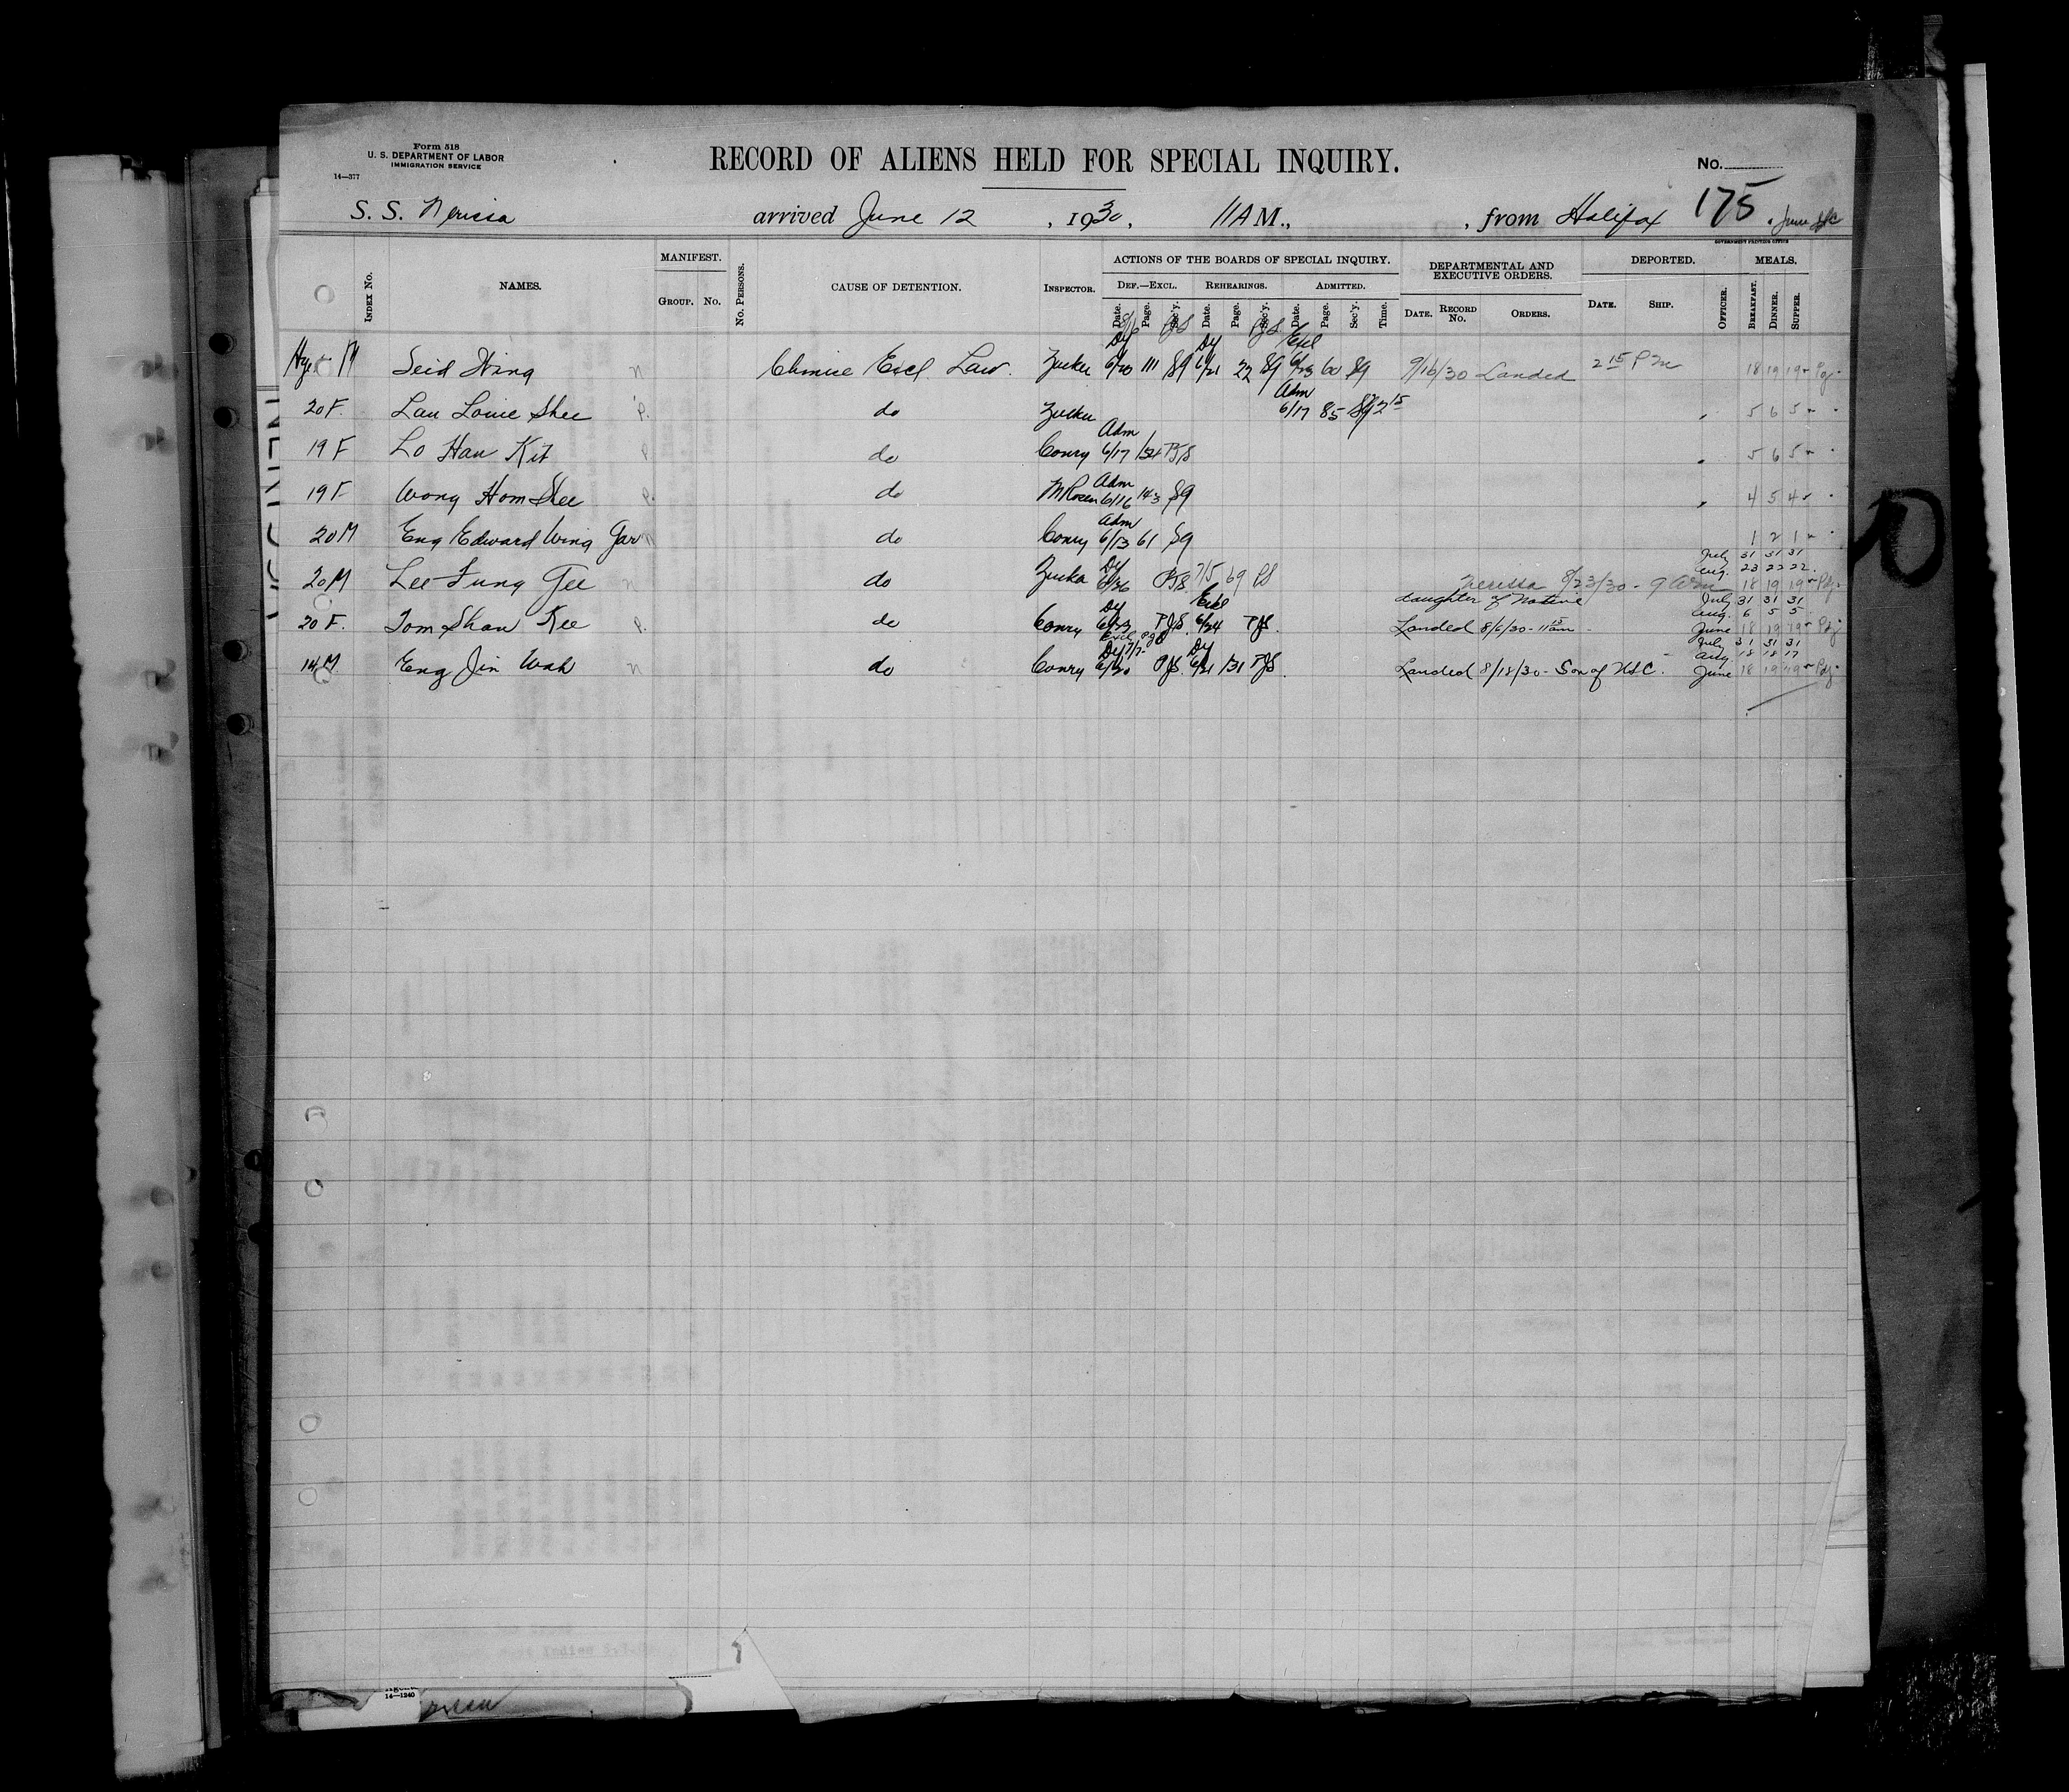 Form 518
U. S. DEPARTMENT OF LABOR
IMMIGRATION SERVICE
14—377
RECORD OF ALIENS HELD FOR SPECIAL INQUIRY.
No.
175
S. S. Nerissa arrived June 12, 1930, 11 A M., , from Halifax
GOVERNMENT PRINTING OFFICE
INDEX NO. NAMES. MANIFEST. GROUP. NO. NO. PERSONS. CAUSE OF DETENTION. INSPECTOR. ACTIONS OF THE BOARDS OF SPECIAL INQUIRY. DEPARTMENTAL AND EXECUTIVE ORDERS. DEPORTED. OFFICER. MEALS.
DEF.—EXCL. REHEARINGS. ADMITTED.
Date. Page. Sec'y. Date. Page. Sec'y. Date. Page. Sec'y. Time. DATE. RECORD NO. ORDERS. DATE. SHIP. BREAKFAST. DINNER. SUPPER.
Seid Wing n Chinese Excl. Law. Zucker 6/20 111 SG 6/21 22 SG Excl 6/23 60 SG 9/16/30 Landed 2 15 PM 18 19 19
20 F. Lau Louie Shee P. do Zucker Adm 6/17 85 SG 2 15 5 6 5
19 F Lo Hau Kit P do Conry Adm 6/17 PJS 5 6 5
19 F Wong Hom Shee P. do M Rosen Adm 6/16 143 SG 4 5 4
20 M Eng Edward Wing Gar n do Conry Adm 6/13 61 SG 1 2 1
July 31 31 31
Aug. 23 22 22
20 M Lee Fung Gee n do Zucker 6/26 PJS 7/5 69 PS Nerissa 8/23/30 - 9 AM 18 19 19
daughter of Native July 31 31 31
Aug. 6 5 5
20 F. Tom Shan Kee P. do Conry 6/23 PJS. Excl 6/24 PJS. Landed 8/6/30 - 11 15 am June 18 19 19
July 31 31 31
Aug. 18 18 17
14 M. Eng Jin Wah n do Conry 6/20 PJS. 6/21 131 PJS. Landed 8/18/30 - Son of USC. June 18 19 19
14—1240